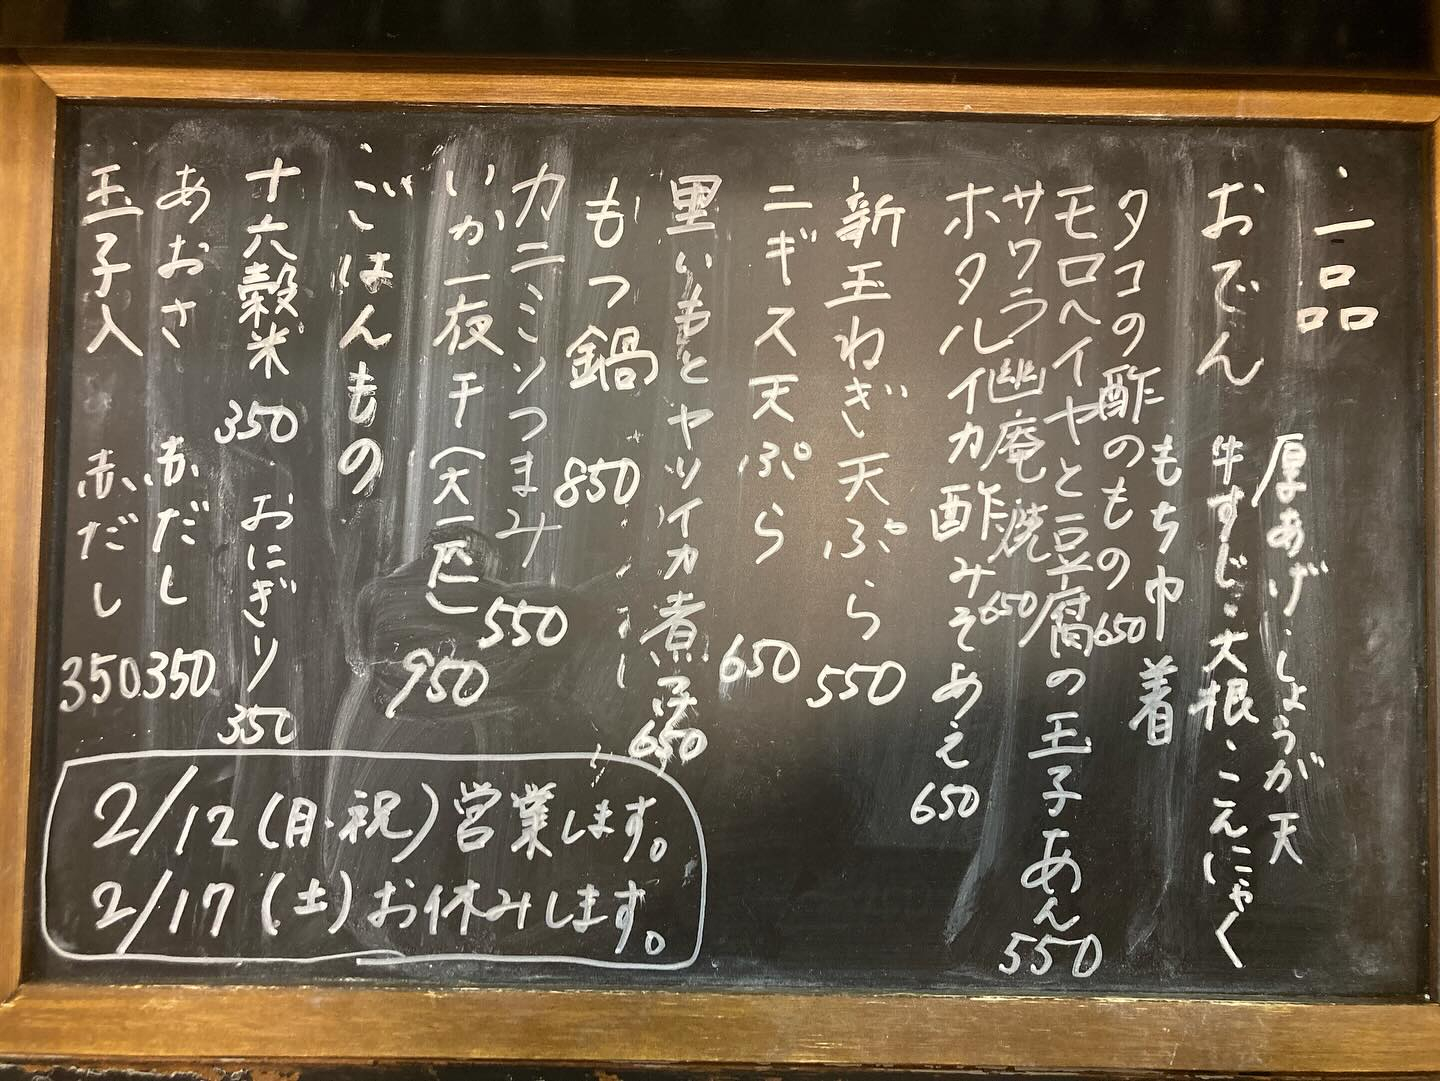 ・一品
おでん 厚あげ・しょうが天
牛すじ・大根・こんにゃく
もち巾着
タコの酢のもの 650
モロヘイヤと豆腐の玉子あん 550
サワラ幽庵焼 650
ホタルイカ酢みそあえ 650
新玉ねぎ天ぷら 550
ニギス天ぷら 650
里いもとヤリイカ煮 650
もつ鍋 850
カニミソつまみ 550
いか一夜干(大一匹) 950
・ごはんもの
十六穀米 350 おにぎり 350
あおさ 赤だし 350
玉子入 赤だし 350
2/12(月・祝)営業します。
2/17(土)お休みします。